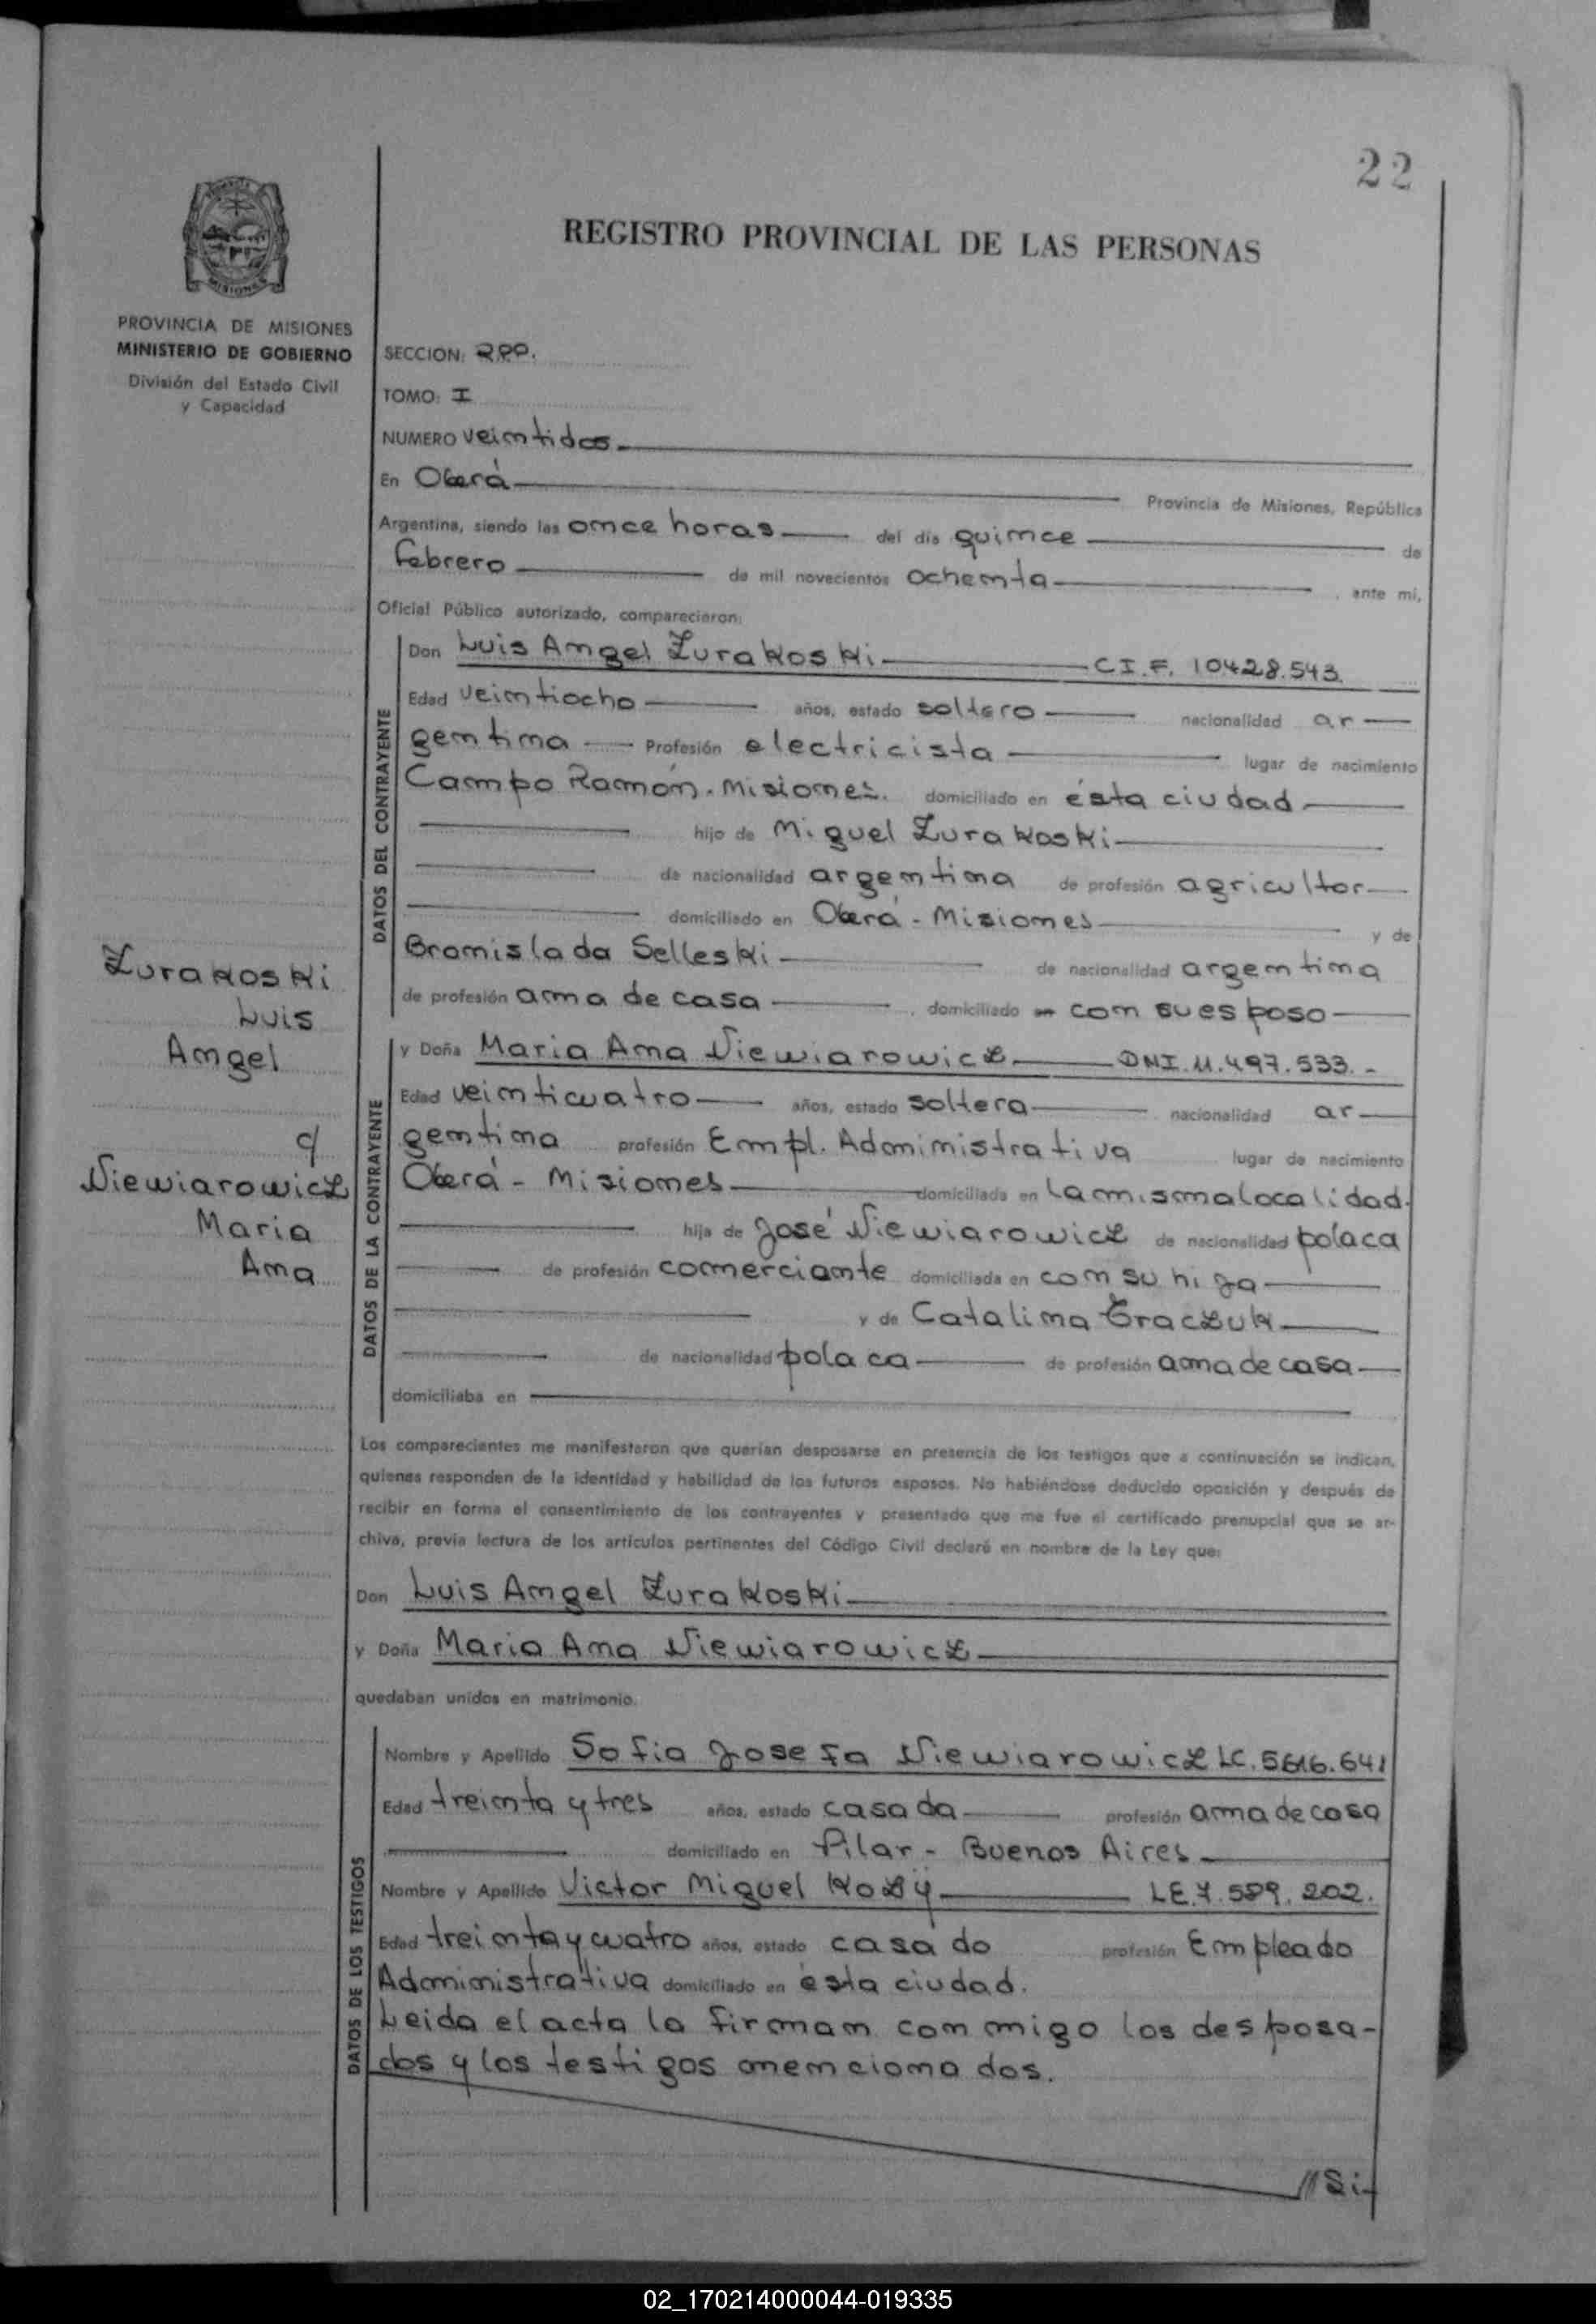 22
REGISTRO PROVINCIAL DE LAS PERSONAS
MISIONES
PROVINCIA DE MISIONES
MINISTERIO DE GOBIERNO
División del Estado Civil
y Capacidad
SECCION: RPP.
TOMO: I
NUMERO veintidos
En Oberá Provincia de Misiones, República
Argentina, siendo las once horas del día quince de
febrero de mil novecientos ochenta , ante mi,
Oficial Público autorizado, comparecieron:
DATOS DEL CONTRAYENTE
Don Luis Angel Zurakoski C.I.F. 10428.543.
Edad veintiocho años, estado soltero nacionalidad ar
gentina Profesión electricista lugar de nacimiento
Campo Ramón. Misiones. domiciliado en ésta ciudad
hijo de Miguel Zurakoski
de nacionalidad argentina de profesión agricultor
domiciliado en Oberá - Misiones y de
Bronislada Selleski de nacionalidad argentina
de profesión ama de casa , domiciliado en con su esposo
Zurakoski
Luis
Angel
c/
Niewiarowicz
Maria
Ana
DATOS DE LA CONTRAYENTE
y Doña Maria Ana Niewiarowicz DNI. 11.497.533. -
Edad veinticuatro años, estado soltera nacionalidad ar
gentina profesión Empl. Administrativa lugar de nacimiento
Oberá - Misiones domiciliada en la misma localidad.
hija de José Niewiarowicz de nacionalidad polaca
de profesión comerciante domiciliada en con su hija
y de Catalina Traczuk
de nacionalidad polaca de profesión ama de casa
domiciliaba en
Los comparecientes me manifestaron que querían desposarse en presencia de los testigos que a continuación se indican,
quienes responden de la identidad y habilidad de los futuros esposos. No habiéndose deducido oposición y después de
recibir en forma el consentimiento de los contrayentes y presentado que me fue el certificado prenupcial que se ar-
chiva, previa lectura de los artículos pertinentes del Código Civil declaré en nombre de la Ley que:
Don Luis Angel Zurakoski
y Doña Maria Ana Niewiarowicz
quedaban unidos en matrimonio.
DATOS DE LOS TESTIGOS
Nombre y Apellido Sofia Josefa Niewiarowicz LC. .641
Edad treinta y tres años, estado casada profesión ama de casa
domiciliado en Pilar - Buenos Aires
Nombre y Apellido Victor Miguel Kozÿ LE. 7.589.202.
Edad treinta y cuatro años, estado casado profesión Empleado
Administrativa domiciliado en ésta ciudad.
Leida el acta la firman conmigo los desposa-
dos y los testigos mencionados.
//Si-
02_170214000044-019335